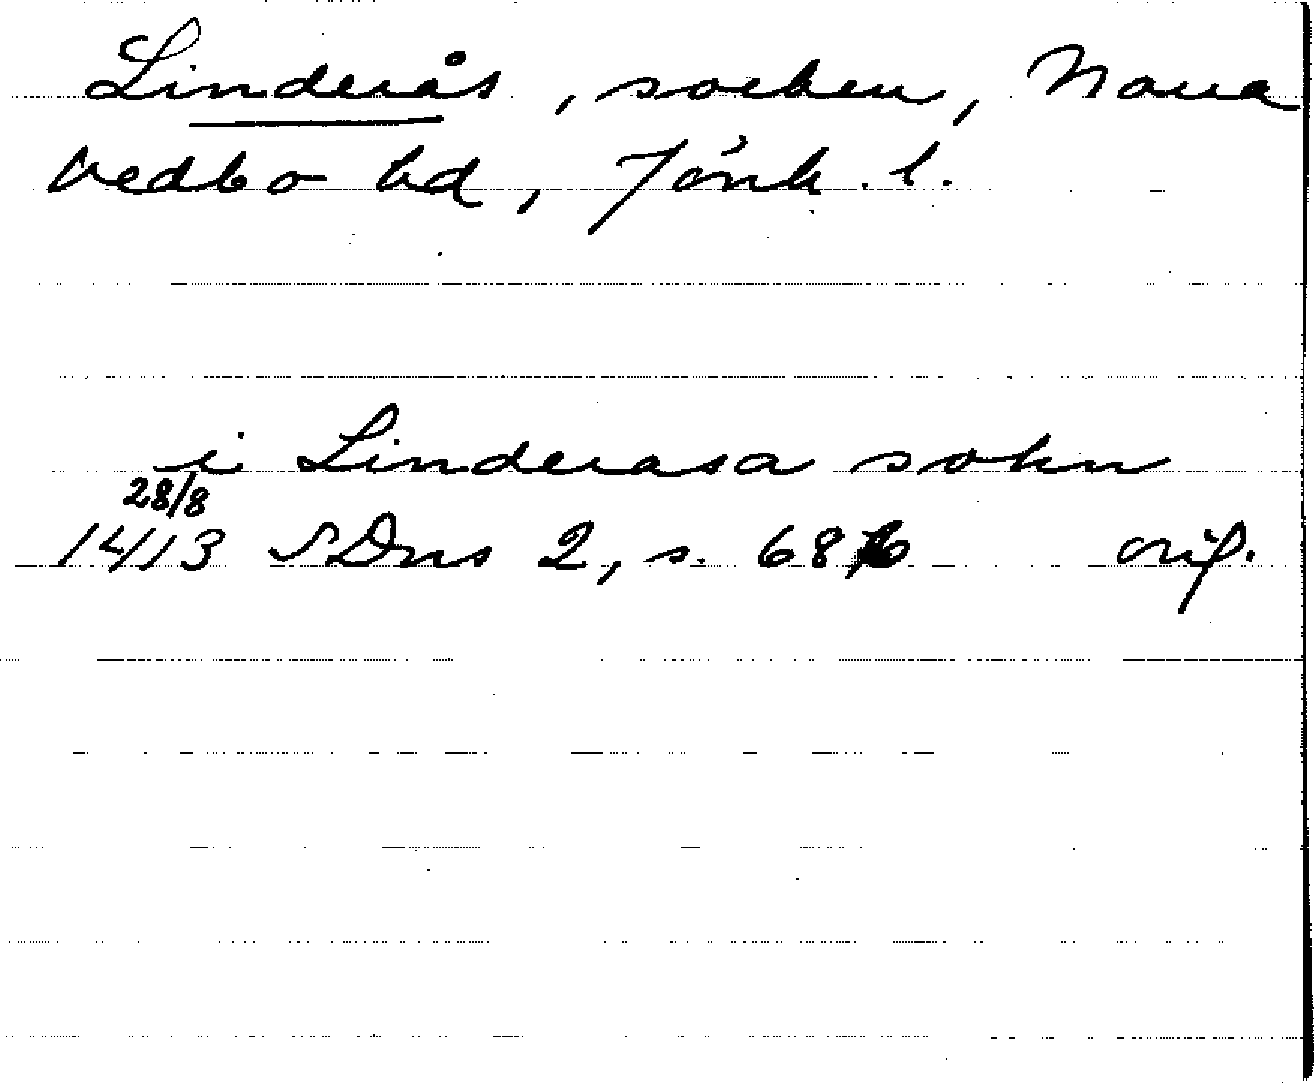 Linderås, socken, Norra
Vedbo hd, Jönk. l.
i Linderasa sokn
28/8
1413 SDns 2, s. 686 orig.